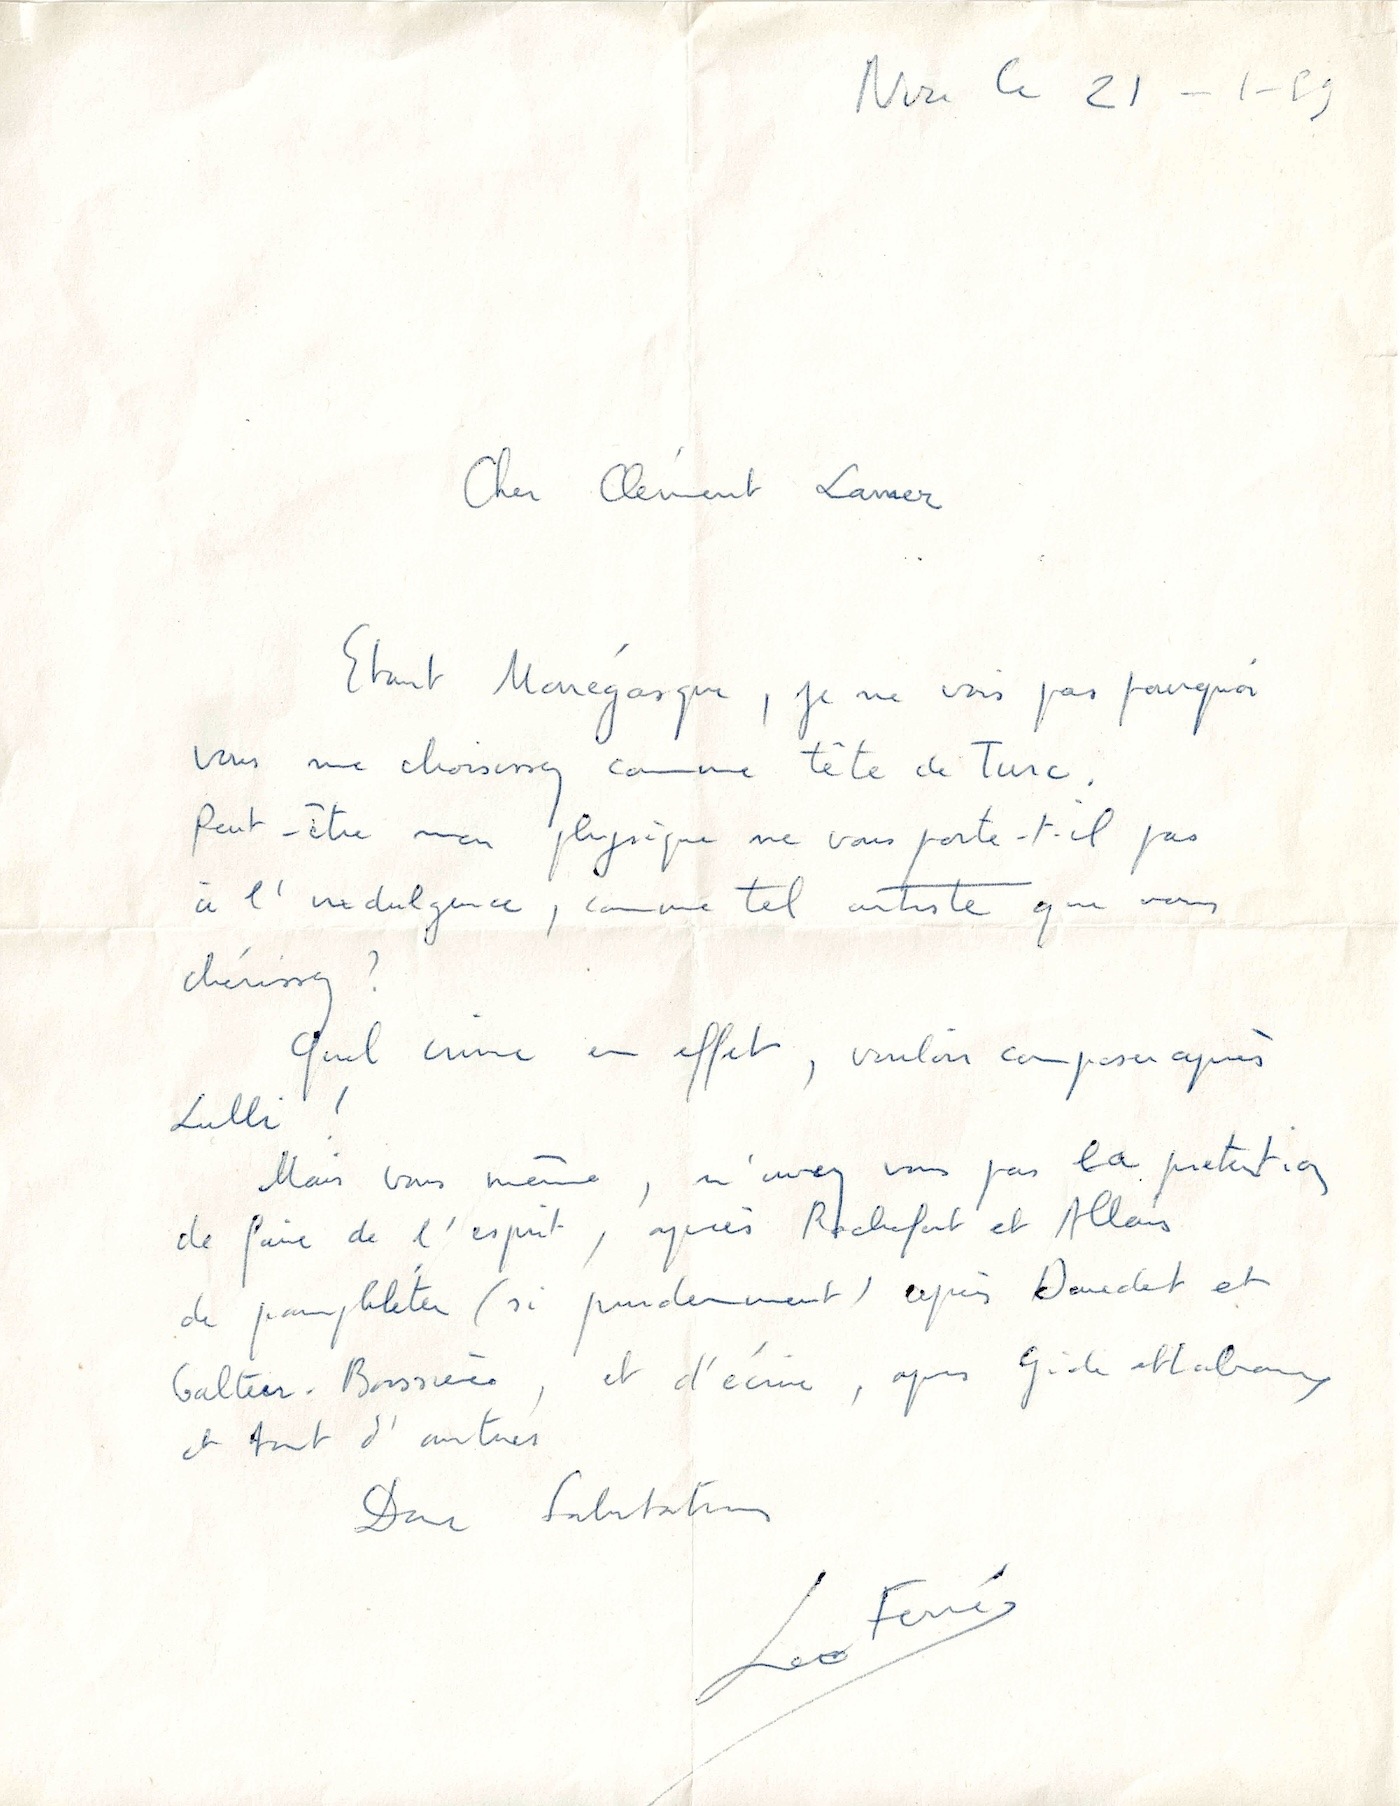 Nice le 21-1-59
Cher Clément Lanier
Etant Monégasque, je ne vois pas pourquoi
vous me choisissez comme tête de Turc.
Peut-être mon physique ne vous porte-t-il pas
à l'indulgence, comme tel artiste que vous
chérissez ?
Quel crime en effet, vouloir composer après
Lulli !
Mais vous même, n'avez vous pas la prétention
de faire de l'esprit, après Rochefort et Allais
de pamphléter (si prudemment) après Daudet et
Galtier-Boissière, et d'écrire, après Gide et Malraux
et tant d'autres
Donc Salutations
Leo Ferré